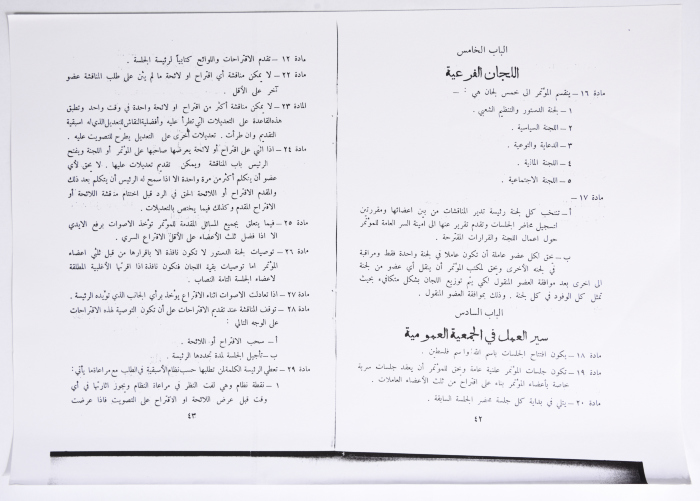 الباب الخامس
اللجان الفرعية
مادة ١٦ – ينقسم المؤتمر الى خمس لجان هي : –
١ – لجنة الدستور والتنظيم الشعبي .
٢ – اللجنة السياسية .
٣ – الدعاية والتوعية .
٤ – اللجنة المالية .
٥ – اللجنة الاجتماعية .
مادة ١٧ –
أ – تنتخب كل لجنة رئيسة تدير المناقشات من بين اعضائها ومقررتين
لتسجيل محاضر الجلسات وتقدم تقرير عنها الى امينة السر العامة للمؤتمر
حول اعمال اللجنة والقرارات المقترحة .
ب – يحق لكل عضو عاملة أن تكون عاملا في لجنة واحدة فقط ومراقبة
في لجنة الأخرى ويحق لمكتب المؤتمر أن ينقل أي عضو من لجنة
الى اخرى بعد موافقة العضو المنقول لكي يتم توزيع اللجان بشكل متكافىء بحيث
تمثل كل الوفود في كل لجنة . وذلك بموافقة العضو المنقول .
الباب السادس
سير العمل في الجمعية العمومية
مادة ١٨ – يكون افتتاح الجلسات باسم الله وباسم فلسطين .
مادة ١٩ – تكون جلسات المؤتمر علنية عامة ويحق للمؤتمر أن يعقد جلسات سرية
خاصة بأعضاء المؤتمر بناء على اقتراح من ثلث الأعضاء العاملات .
مادة ٢٠ – يتلى في بداية كل جلسة محضر الجلسة السابقة .
٤٢
مادة ١٢ – تقدم الاقتراحات واللوائح كتابياً لرئيسة الجلسة .
مادة ٢٢ – لا يمكن مناقشة أي اقتراح او لائحة ما لم يثن على طلب المناقشة عضو
آخر على الأقل .
المادة ٢٣ – لا يمكن مناقشة أكثر من اقتراح او لائحة واحدة في وقت واحد وتطبق
هذه القاعدة على التعديلات التي تطرأ عليه وأفضلية النقاش للتعديل الذي له اسبقية
التقديم وان طرأت . تعديلات أخرى على التعديل يطرح للتصويت عليه .
مادة ٢٤ – اذا اثني على اقتراح أو لائحة يعرضها صاحبها على المؤتمر أو اللجنة ويفتح
الرئيس باب المناقشة ويمكن تقديم تعديلات عليها . لا يحق لأي
عضو أن يتكلم أكثر من مرة واحدة الا اذا سمح له الرئيس أن يتكلم بعد ذلك
ولمقدم الاقتراح أو اللائحة الحق في الرد قبل اختتام مناقشة اللائحة أو
الاقتراح المقدم وكذلك فيما يختص بالتعديلات .
مادة ٢٥ – فيما يتعلق بجميع المسائل المقدمة للمؤتمر تؤخذ الاصوات برفع الايدي
الا اذا فضل ثلث الأعضاء على الأقل الاقتراع السري .
مادة ٢٦ – توصيات لجنة الدستور لا تكون نافذة الا باقرارها من قبل ثلثي اعضاء
المؤتمر اما توصيات بقية اللجان فتكون نافذة اذا اقرتها الأغلبية المطلقة
لاعضاء الجلسة التامة النصاب .
مادة ٢٧ – اذا تعادلت الاصوات اثناء الاقتراع يؤخذ برأي الجانب الذي تؤيده الرئيسة .
مادة ٢٨ – توقف المناقشة عند تقديم الاقتراحات على أن تكون التوصية لهذه الاقتراحات
على الوجه التالي :
أ – سحب الاقتراح أو اللائحة .
ب – تأجيل الجلسة لمدة تحددها الرئيسة .
مادة ٢٩ – تعطي الرئيسة الكلمة لمن تطلبها حسب نظام الأسبقية في الطلب مع مراعاة ما يأتي :
١ – نقطة نظام وهي لفت النظر في مراعاة النظام ويجوز اثارتها في أي
وقت قبل عرض اللائحة او الاقتراح على التصويت فاذا عرضت
٤٣